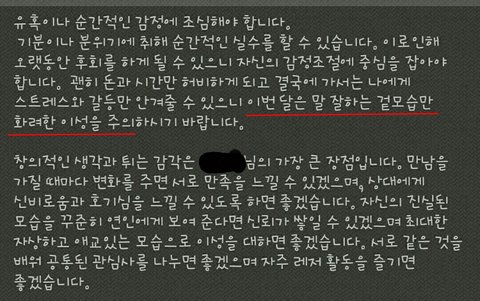 유혹이나 순간적인 감정에 조심해야 합니다.
기분이나 분위기에 취해 순간적인 실수를 할 수 있습니다. 이로인해
오랫동안 후회를 하게 될 수 있으니 자신의 감정조절에 중심을 잡아야
합니다. 괜히 돈과 시간만 허비하게 되고 결국에 가서는 나에게
스트레스와 갈등만 안겨줄 수 있으니 이번 달은 말 잘하는 겉모습만
화려한 이성을 주의하시기 바랍니다.
창의적인 생각과 튀는 감각은 님의 가장 큰 장점입니다. 만남을
가질 때마다 변화를 주면 서로 만족을 느낄 수 있겠으며, 상대에게
신비로움과 호기심을 느낄 수 있도록 하면 좋겠습니다. 자신의 진실된
모습을 꾸준히 연인에게 보여 준다면 신뢰가 쌓일 수 있겠으며 최대한
자상하고 애교있는 모습으로 이성을 대하면 좋겠습니다. 서로 같은 것을
배워 공통된 관심사를 나누면 좋겠으며 자주 레저 활동을 즐기면
좋겠습니다.